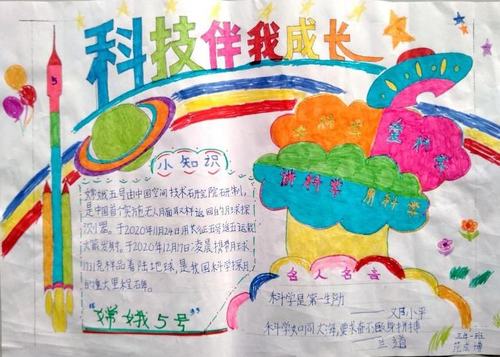 科技伴我成长
5
小知识
嫦娥五号由中国空间技术研究院研制,
是中国首个实施无人月面取样返回的月球探
测器。于2020年11月24日用长征五号遥五运载
火箭发射。于2020年12月17日凌晨携带月球
样品着陆地球,是我国科学探月
的重大里程石碑。
"嫦娥5号"
学科学
爱科学
讲科学 用科学
名人名言
科学是第一生
邓小平
三年一班